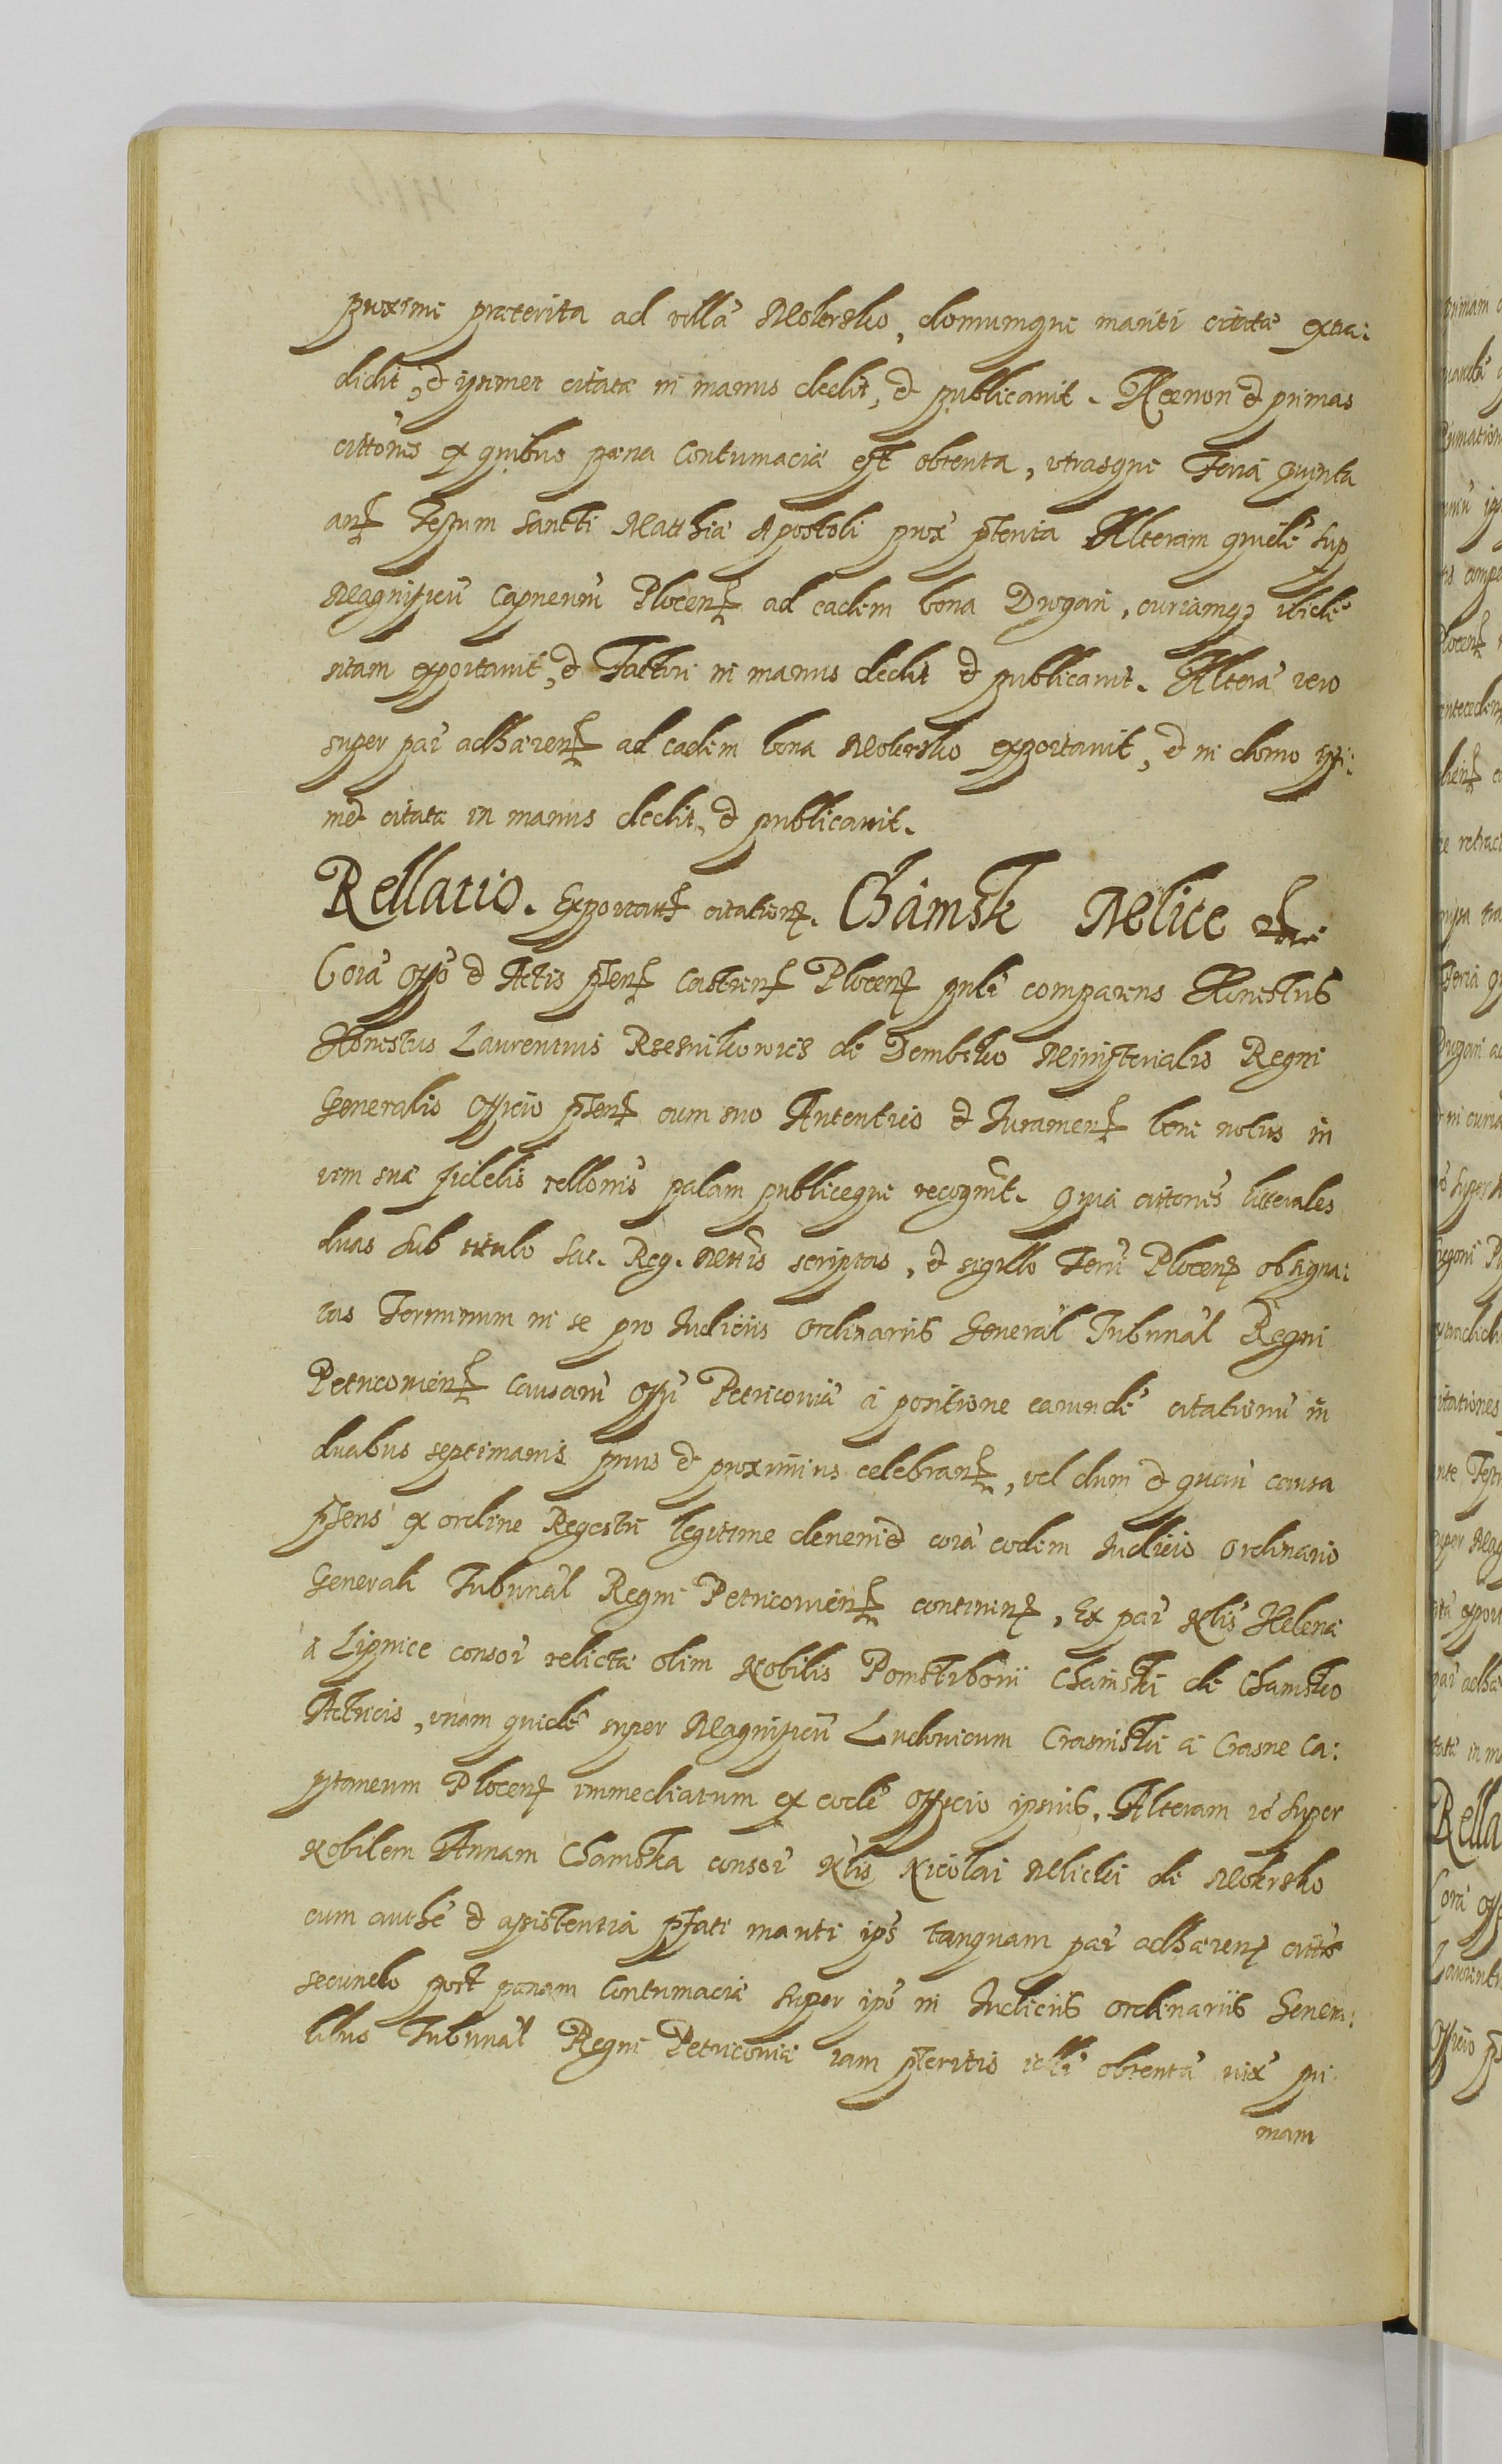 proxime præterita ad villā Mokrsko, domumque mariti citatæ extra:
didit, et ipsimet citatæ in manus dedit, et publicavit. Necnon et primas
cittōnes ex quibus pæna Contumaciæ est obtenta, utrasque Feria Quinta
anꝭ Festum Sancti Matthiæ Apostoli prox̄ pterita Alteram quidē sup
Magnificū Capneum̄ Plocenꝭ ad eadem bona Drogan, curiamq; ibidē
sitam exportavit, et Factori in manus dedit et publicavit. Alterā vero
super par̄ adhærenꝭ ad eadem bona Mokrsko exportavit, et in domo ipsi:
met citatæ in manus dedit, et publicavit.
Rellatio. Exportatꝭ citationꝭ. Chāmsk Mlice
Corā Offō et Actis pñtenꝭ Castrenꝭ Plocenꝭ publē comparens Honestus
Honestus Laurentius Rzesnikowicz de Dembsko Ministerialis Regni
Generalis Officio pñtenꝭ cum suo Autentico et Juramenꝭ bene notus in
vim suæ fidelis rellonis palam publiceque recognit. Quia cittones litterales
duas sub titulo Sac. Reg. Mttis scriptas, et sigillo Terrī Plocenꝭ obsigna:
tas Terminum in se pro Judiciis Ordinariis General̄ Tribunal̄ Regni
Petricovienꝭ Causarū Offī Petricoviæ a positione earundē citationū in
duabus septimanis prius et proximius celebranꝭ, vel dum et quan̄ causa
pñtens ex ordine Regestri legitime devenidt corā eodem Judicio Ordinario
Generali Tribunal̄ Regni Petricovienꝭ continenꝭ, Ex par̄ Nlis Helenæ
a Lipnice consor̄ relictæ olim Nobilis Pomstiborii Chamski de Chamsko
Actricis, unam quidē super Magnificū Ludovicum Crasinski a Crasne Ca:
pitaneum Plocenꝭ immediatum ex eodē Officio ipsius, Alteram vō super
Nobilem Annam Chamska consor̄ Nlis Nicolai Mlicki de Mokrsko
cum authē et assistentia pfati mariti ips̄ tanquam par̄ adhærenꝭ cittīs
secundo post pænam Contumaciæ super ips̄ in Judiciis Ordinariis Genera:
libus Tribunal̄ Regni Petricoviæ iam pteritis obtentā prī
mam